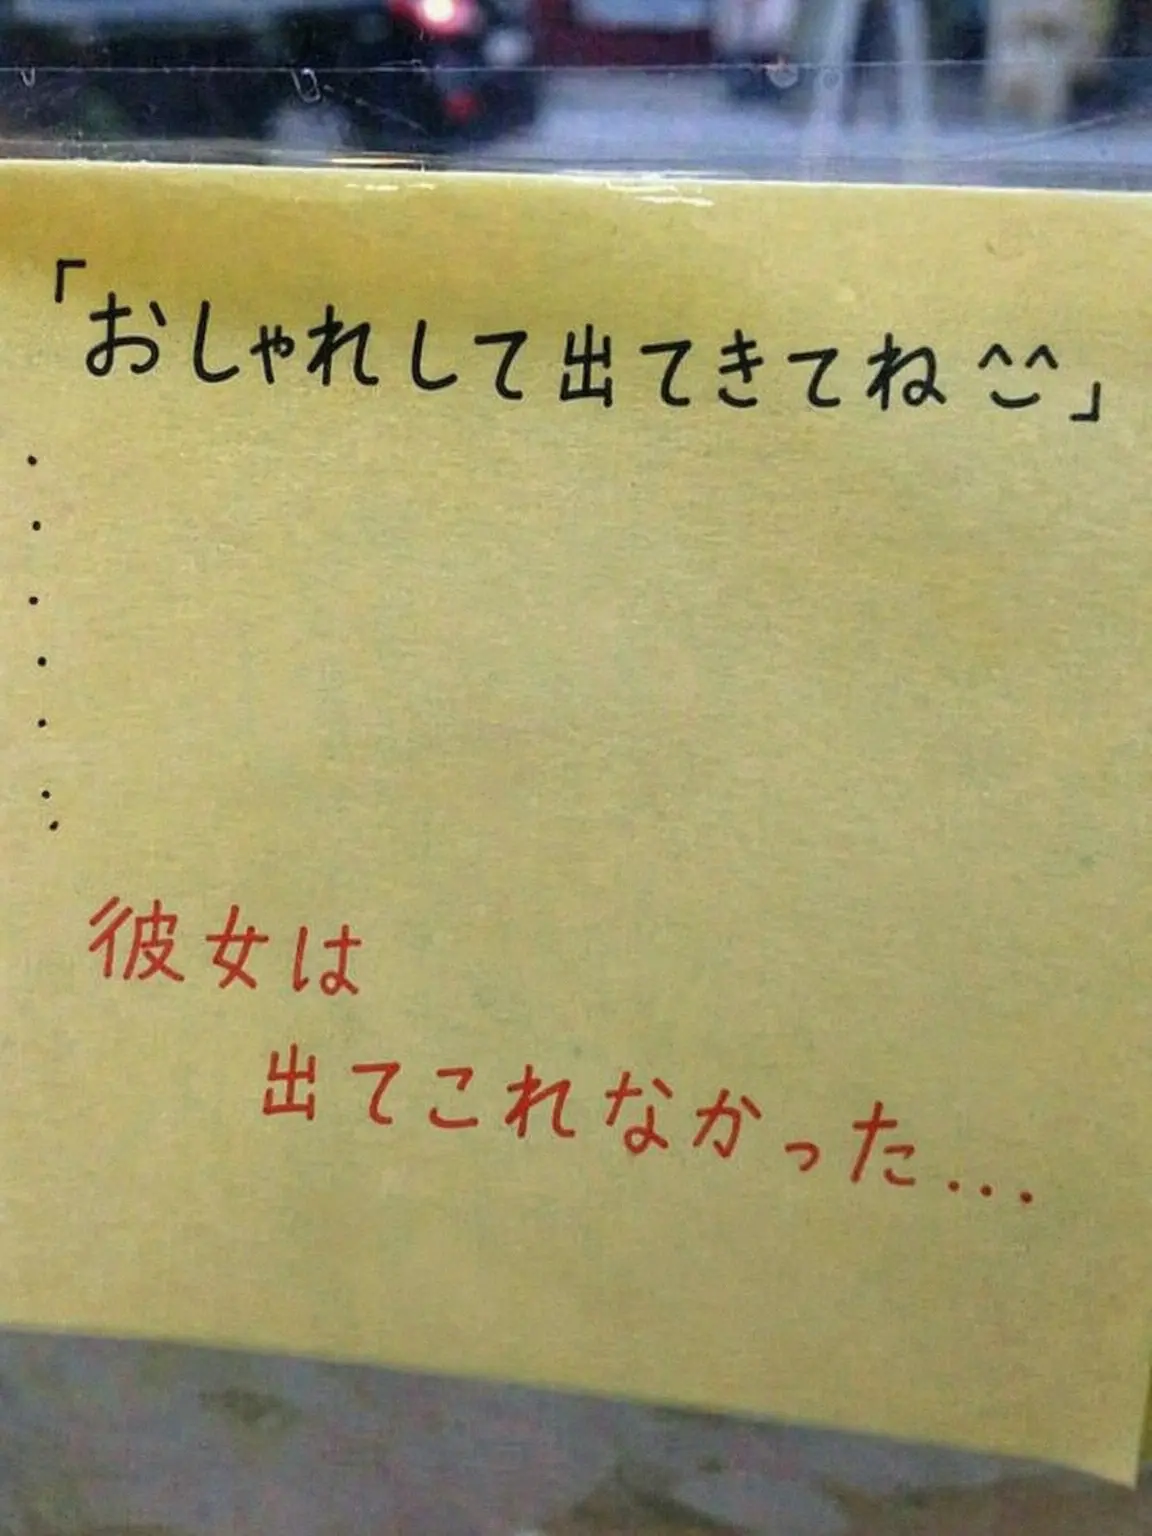 「おしゃれして出てきてね^^」
・
・
・
・
・
・
・
彼女は
出てこれなかった...